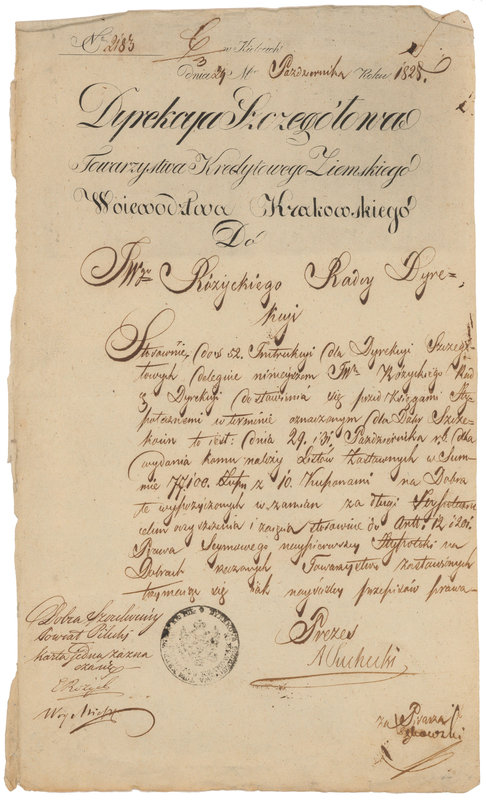 Nr 2183
w Kielcach
dnia 24 Mca Października Roku 1828.
Dyrekcya Szczegółowa
Towarzystwa Kredytowego Ziemskiego
Woiewodztwa Krakowskiego
Do
JWgo Różyckiego Radcy Dyre-
kcyi
Stosownie do § 52. Instrukcyi dla Dyrekcyi Szczegó-
łowych deleguie ninieyszem JWgo Rożyckiego Rad
Dyrekcyi do stawienia się przed Księgami Hy-
potecznemi w terminie oznaczonym dla Dóbr Szcze-
kocin to iest: dnia 29. i 31. Października r. b. dla
wydania komu należy Listów Zastawnych w Sum-
mie 77,100. Złp z 10. Kuponami na Dobra
te wypożyczonych w zamian za długi
celem oczyszczenia i stosownie do Artt. 12 i 20.
Prawa Seymowego naypierwszey Hypoteki na
Dobrach rzeczonych Towarzystwu
trzymaiąc się iak nayściśley przepisów prawa
Prezes
A Suchecki
Dobra
Powiat Pilicki
karta jedna
za Pisarza